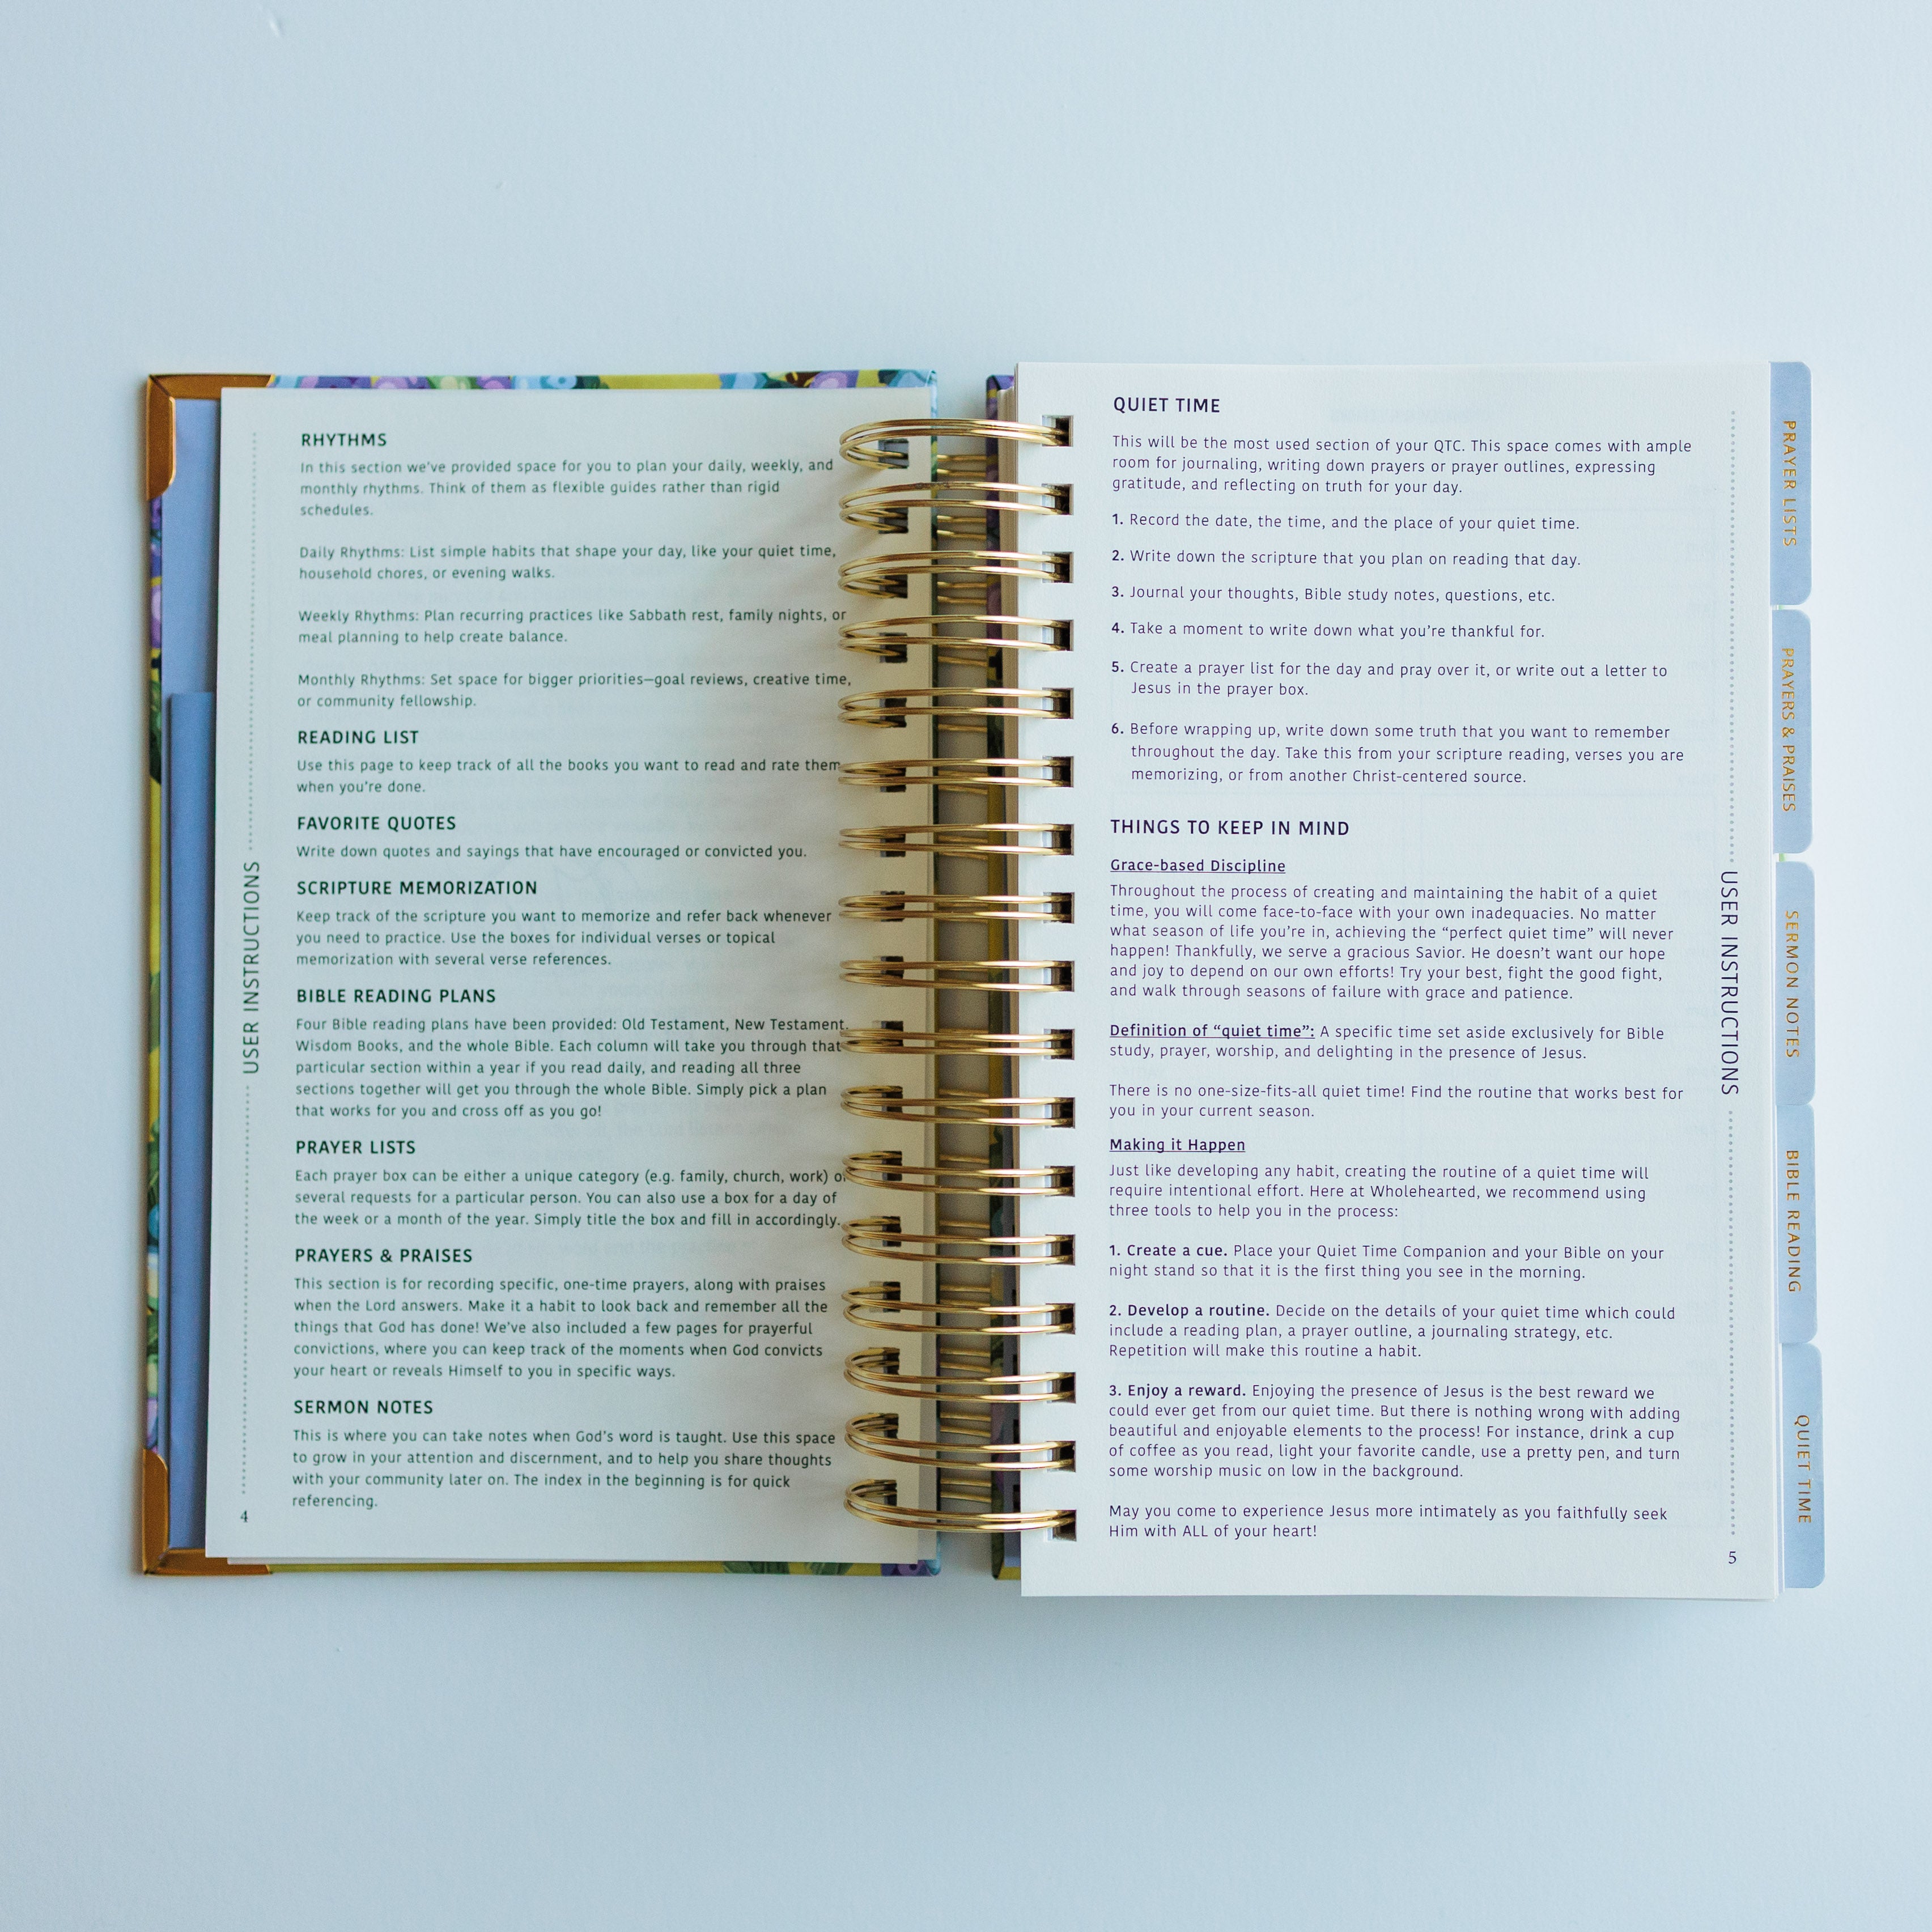 RHYTHMS
In this section we've provided space for you to plan your daily, weekly, and
monthly rhythms. Think of them as flexible guides rather than rigid
schedules.
Daily Rhythms: List simple habits that shape your day, like your quiet time,
household chores, or evening walks.
Weekly Rhythms: Plan recurring practices like Sabbath rest, family nights, or
meal planning to help create balance.
Monthly Rhythms: Set space for bigger priorities—goal reviews, creative time,
or community fellowship.
READING LIST
Use this page to keep track of all the books you want to read and rate them
when you're done.
FAVORITE QUOTES
Write down quotes and sayings that have encouraged or convicted you.
SCRIPTURE MEMORIZATION
Keep track of the scripture you want to memorize and refer back whenever
you need to practice. Use the boxes for individual verses or topical
memorization with several verse references.
BIBLE READING PLANS
Four Bible reading plans have been provided: Old Testament, New Testament,
Wisdom Books, and the whole Bible. Each column will take you through that
particular section within a year if you read daily, and reading all three
sections together will get you through the whole Bible. Simply pick a plan
that works for you and cross off as you go!
PRAYER LISTS
Each prayer box can be either a unique category (e.g. family, church, work) or
several requests for a particular person. You can also use a box for a day of
the week or a month of the year. Simply title the box and fill in accordingly.
PRAYERS & PRAISES
This section is for recording specific, one-time prayers, along with praises
when the Lord answers. Make it a habit to look back and remember all the
things that God has done! We've also included a few pages for prayerful
convictions, where you can keep track of the moments when God convicts
your heart or reveals Himself to you in specific ways.
SERMON NOTES
This is where you can take notes when God's word is taught. Use this space
to grow in your attention and discernment, and to help you share thoughts
with your community later on. The index in the beginning is for quick
referencing.
USER INSTRUCTIONS
4
QUIET TIME
This will be the most used section of your QTC. This space comes with ample
room for journaling, writing down prayers or prayer outlines, expressing
gratitude, and reflecting on truth for your day.
1. Record the date, the time, and the place of your quiet time.
2. Write down the scripture that you plan on reading that day.
3. Journal your thoughts, Bible study notes, questions, etc.
4. Take a moment to write down what you're thankful for.
5. Create a prayer list for the day and pray over it, or write out a letter to
Jesus in the prayer box.
6. Before wrapping up, write down some truth that you want to remember
throughout the day. Take this from your scripture reading, verses you are
memorizing, or from another Christ-centered source.
THINGS TO KEEP IN MIND
Grace-based Discipline
Throughout the process of creating and maintaining the habit of a quiet
time, you will come face-to-face with your own inadequacies. No matter
what season of life you're in, achieving the “perfect quiet time” will never
happen! Thankfully, we serve a gracious Savior. He doesn't want our hope
and joy to depend on our own efforts! Try your best, fight the good fight,
and walk through seasons of failure with grace and patience.
Definition of “quiet time”: A specific time set aside exclusively for Bible
study, prayer, worship, and delighting in the presence of Jesus.
There is no one-size-fits-all quiet time! Find the routine that works best for
you in your current season.
Making it Happen
Just like developing any habit, creating the routine of a quiet time will
require intentional effort. Here at Wholehearted, we recommend using
three tools to help you in the process:
1. Create a cue. Place your Quiet Time Companion and your Bible on your
night stand so that it is the first thing you see in the morning.
2. Develop a routine. Decide on the details of your quiet time which could
include a reading plan, a prayer outline, a journaling strategy, etc.
Repetition will make this routine a habit.
3. Enjoy a reward. Enjoying the presence of Jesus is the best reward we
could ever get from our quiet time. But there is nothing wrong with adding
beautiful and enjoyable elements to the process! For instance, drink a cup
of coffee as you read, light your favorite candle, use a pretty pen, and turn
some worship music on low in the background.
May you come to experience Jesus more intimately as you faithfully seek
Him with ALL of your heart!
USER INSTRUCTIONS
5
PRAYER LISTS
PRAYERS & PRAISES
SERMON NOTES
BIBLE READING
QUIET TIME